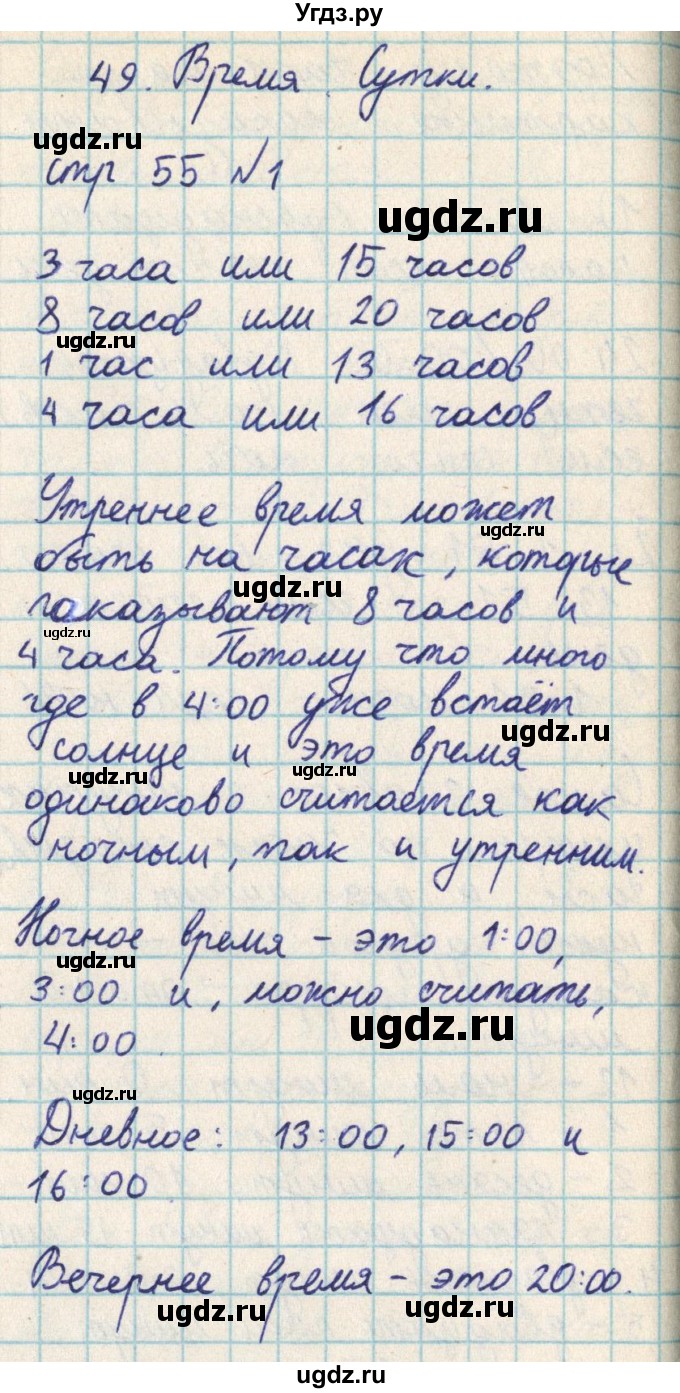 Угдз.ру
49. Время. Сутки.
ugdz.ru
стр 55 №1
ugdz.ru
3 часа или 15 часов
8 часов или 20 часов
ugdz.ru
1 час или 13 часов
4 часа или 16 часов
Утреннее время может
ugdz.ru
быть на часах, которые
ugdz.ru
показывают 8 часов и
ugdz.ru
4 часа. Потому что много
где в 4:00 уже встаёт
ugdz.ru
солнце и это время
ugdz.ru ugdz.ru
одинаково считается как
ночным, так и утренним.
ugdz.ru
Ночное время - это 1:00,
ugdz.ru
3:00 и, можно считать,
ugdz.ru
4:00.
ugdz.ru
Дневное: 13:00, 15:00 и
16:00.
Вечернее время - это 20:00.
ugdz.ru ugdz.ru
ugdz.ru